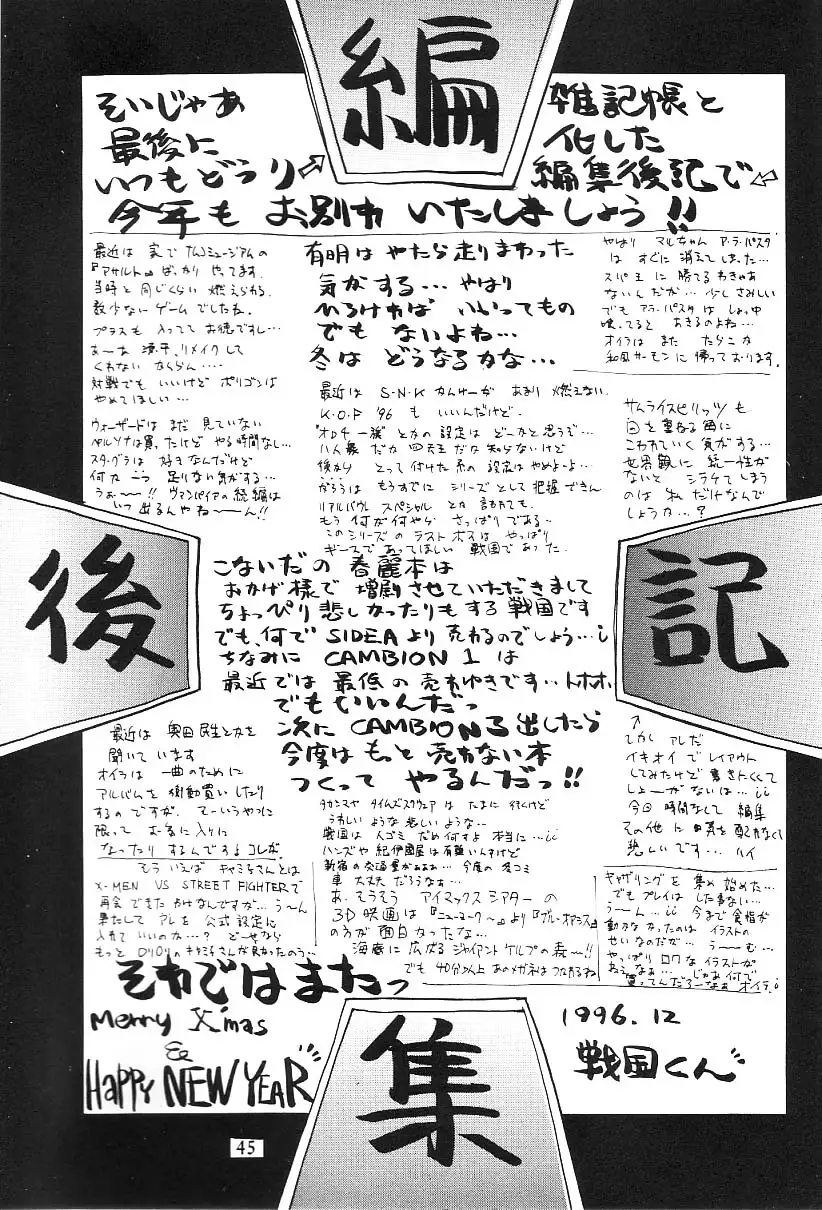 編
集
後
記
そいじゃあ
最後に
いつもどうり⇗
雑記帳と
化した
編集後記で⇦
今年も お別れ いたしましょう!!
最近は 実で ナムコミュージアムの
『アサルト』ばっかり やってます。
当時と 同じくらい 燃えられる
数少ない ゲームでしたね。
プラスも 入ってて お徳ですし…
あーな 源平、リメイクして
くれない ならん…
対戦でも いいけど ポリゴンは
やめてほしい…
ウォーザードは まだ 見ていない
ペルソナは買ったけど やる時間なし…
スターグラは 好きなんだけど
何か 一つ 足りない気がする…
うぉ〜〜!! ヴァンパイアの続編は
いつ 出るんやね〜ん!!
有明は やたら走りまわった
気がする… やはり
ひろければ いいってもの
でも ないよね…
冬は どうなるかな…
やはり マルちゃん ア・ラ・パスタ
は すぐに 消えてしまった…
スパ王に 勝てるわきゃあ
ないんだが… 少しさみしい
でも アラ・パスタは しょっ中
喰ってると あきるのよね…
オイラは また たらこか
和風サーモンに 帰っております。
最近は S・N・K かんけーが あまり 燃えない
K.O.F '96 も いいんだけど。
"オロチ一族" とかの 設定は どーかと 思うぞ…
八人衆 だか 四天王 だか 知らないけど
後から とって 付けた系の 設定は やめよーよ…
がろうは もうすでに シリーズとして 把握できん
リアルバウト スペシャル とか 言われても。
もう 何が何やら さっぱりである…
このシリーズの ラストボスは やっぱり
ギースで あってほしい 戦国であった。
サムライスピリッツも
回を重ねる毎に
こわれていく 気がする…
世界観に 統一性が
ないと シラケてしまう
のは 私だけなんで
しょうか…?
こないだの 春麗本は
おかげ様で 増刷させていただきまして
ちょっぴり 悲しかったりもする 戦国です
でも、何で SIDEA より 売れるのでしょう…
ちなみに CAMBION 1 は
最近では 最低の 売れゆきです… トホホ
でもいいんだっ
次に CAMBION 3 出したら
今度は もっと 売れない本
つくって やるんだっ!!
最近は 奥田民生とかを
聞いて います
オイラは 一曲のために
アルバムを 衝動買い したり
するのですが、 てーいうやつに
限って お気に入りに
なったりするんでするコレが。
もう いえば キャミィさんとは
X-MEN VS STREET FIGHTERで
再会できたわけなしですが… う〜ん
果たして アレを 公式設定に
入れて いいのか…? どーせなら
もっと ロリロリの キャミィさんが良かったのう…
タカシマヤ タイムズスクウェアは たまに 行くけど
うれしい ような 悲しい ような…
戦国は 人ゴミ だめ 何すよ 本当に…
ハンズや 紀伊國屋は 有難いんすけど
新宿の交通量がああぁ… 今度の 冬コミ
車 大丈夫だろうなぁ…
あ、そうそう アイマックスシアターの
3D映画は 『ニューヨーク〜』より『ブルー・オアシス』
の方が 面白かったな…
海底に 広がる ジャイアント ケルプの 森〜!!
でも 40分以上 あのメガネは つかれるね
↑
しかし アレだ
イキオイで レイアウト
してみたけど 書きにくくて
しょーがないは…
今回 時間なしで 編集
その他に 日気を 配れなくて
悲しいです… ハイ
ギャザリングを 集め 始めた…
でも プレイは した事ない…
う〜ん… 今まで 食指が
動かなかったのは イラストの
せいなのだが… う〜む…
やっぱり ロクな イラストが
ねぇなぁ… じゃあ何で
買ってんだろーなぁオイラ
それでは またっ
Merry X'mas
&
HAPPY NEW YEAR
1996.12
戦国くん
45